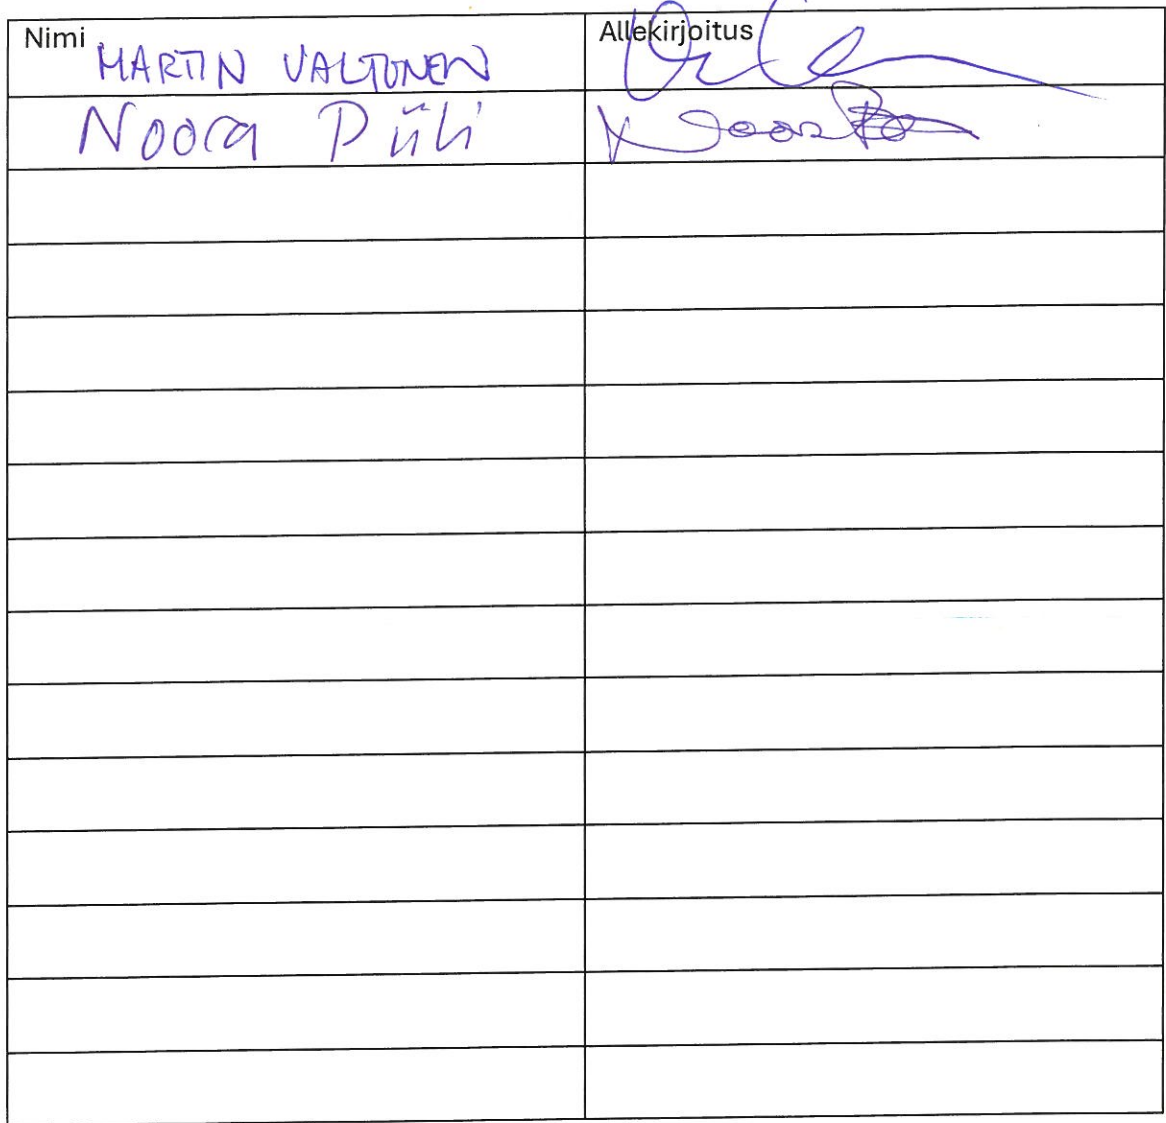 Nimi MARTIN VALTONEN Allekirjoitus
Noora Piili Noora